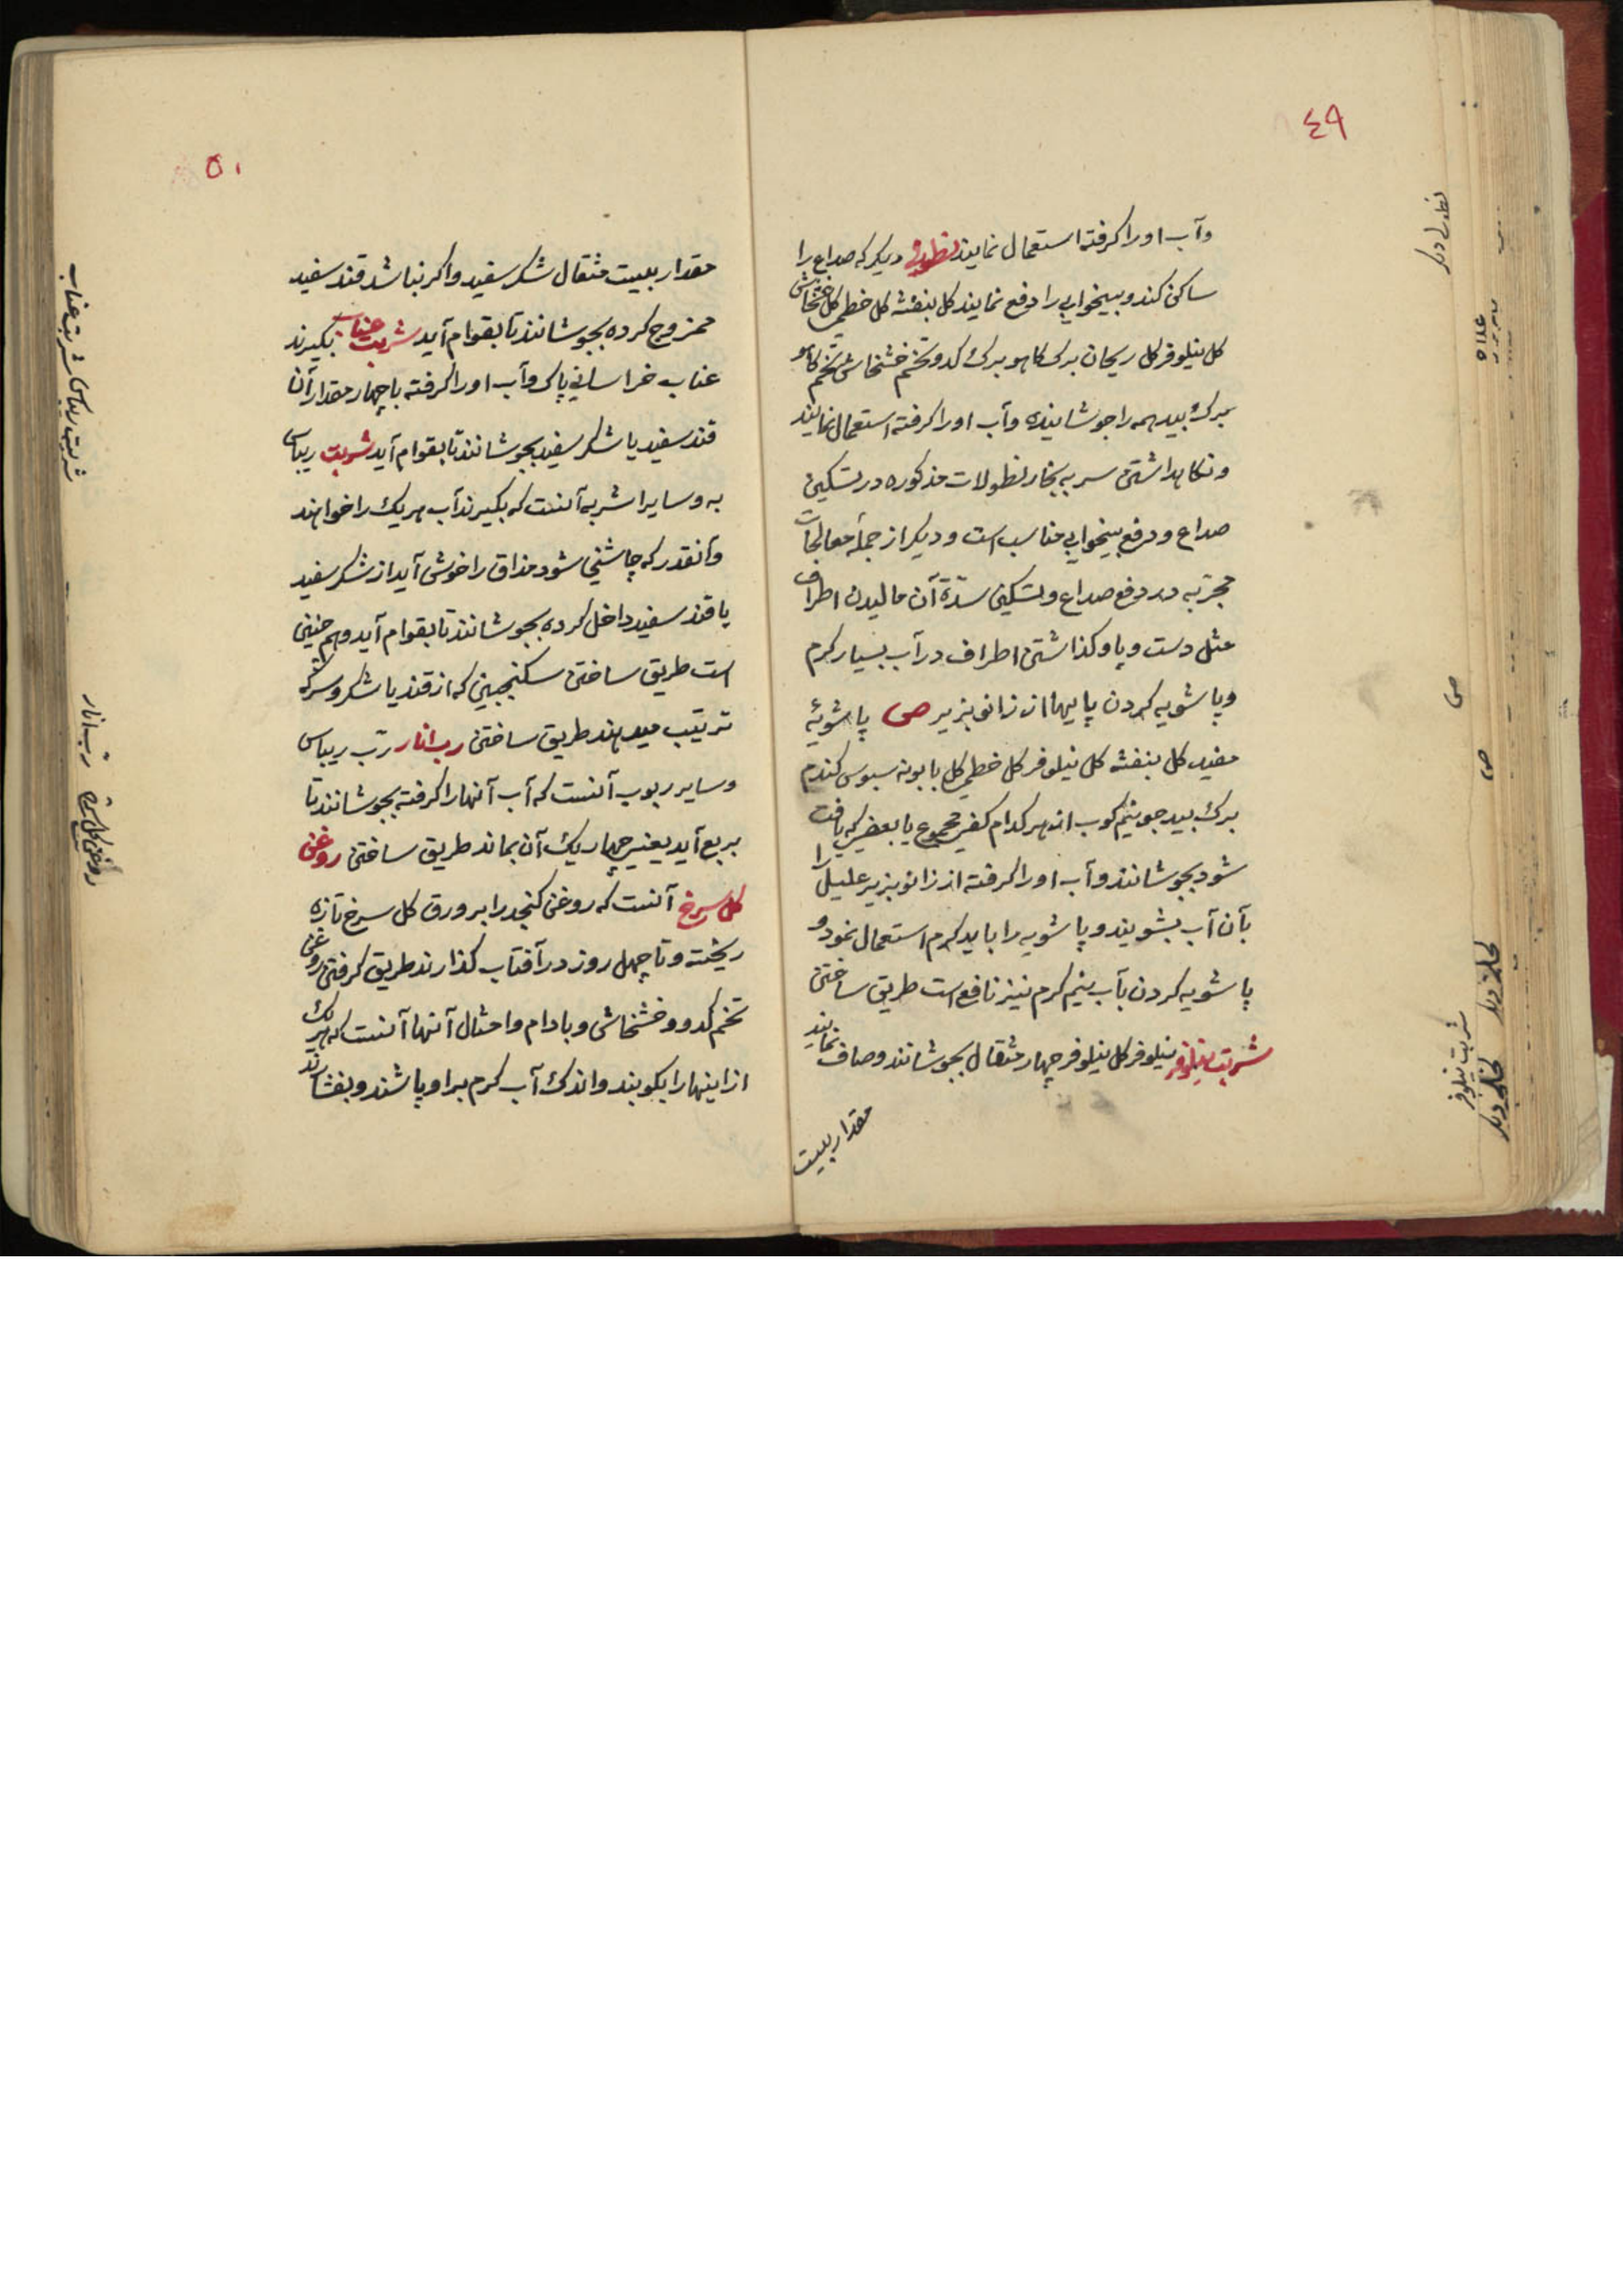 ٤٩
وآب اورا کرفته استعمال نمایند نطولی دیکر که صداع را
ساکن کند و بیخوابی را دفع نمایند کل بنفشه کل خطمی کل خشخاش
کل نیلوفر کل ریحان برک کاهو برک کدو تخم خشخاش تخم کاهو
برک بید همه را جوشانیده وآب اورا کرفته استعمال نمایند
و نکاهداشتن سر به بخار نطولات مذکوره در تسکین
صداع و دفع بیخوابی مناسب است و دیکر از جملهٔ معالجات
مجرّبه در دفع صداع و تسکین شدّة آن مالیدن اطراف
مثل دست و پا و کذاشتن اطراف در آب بسیار کرم
و پاشویه کردن پایها از زانو بزیر ص پاشویهٔ
مفید کل بنفشه کل نیلوفر کل خطمی کل بابونه سبوس کندم
برک بید جو نیم کوب از هر کدام کفی مجموع یا بعضی که یافت
شود بجوشانند وآب اورا کرفته از زانو بزیر علیل را
بآن آب بشویند و پاشویه را باید کرم استعمال نمود و
پاشویه کردن بآب نیم کرم نیز نافع است طریق ساختن
شربت نیلوفر نیلوفر کل نیلوفر چهار مثقال بجوشانند وصاف نمایند
مقدار بیست
نطولی دیکر
ص
شربت نیلوفر
٥٠
مقدار بیست مثقال شکر سفید واکر نباشد قند سفید
ممزوج کرده بجوشانند تا بقوام آید شربت عناب بکیرند
عناب خراسانی پاک وآب اورا کرفته با چهار مقدار آن
قند سفید یا شکر سفید بجوشانند تا بقوام آید شربت ریباس
به و سایر اشربه آنست که بکیرند آب هریک را خواهند
وآنقدر که چاشنی شود مذاق را خوش آید از شکر سفید
یا قند سفید داخل کرده بجوشانند تا بقوام آید وهم چنین
است طریق ساختن سکنجبین که از قند یا شکر و سرکه
ترتیب میدهند طریق ساختن رب انار ربّ ریباس
وسایر ربوب آنست که آب آنها را کرفته بجوشانند تا
بربع آید یعنی چهار یک آن بماند طریق ساختن روغن
کل سرخ آنست که روغن کنجد را بر ورق کل سرخ تازه
ریخته و تا چهل روز در آفتاب کذارند طریق کرفتن روغن
تخم کدو و خشخاش و بادام وامثال آنها آنست که هریک
از اینها را بکوبند واندک آب کرم بر او پاشند و بفشارند
شربت ریباس شربت عناب
ربّ انار
روغن کل سرخ